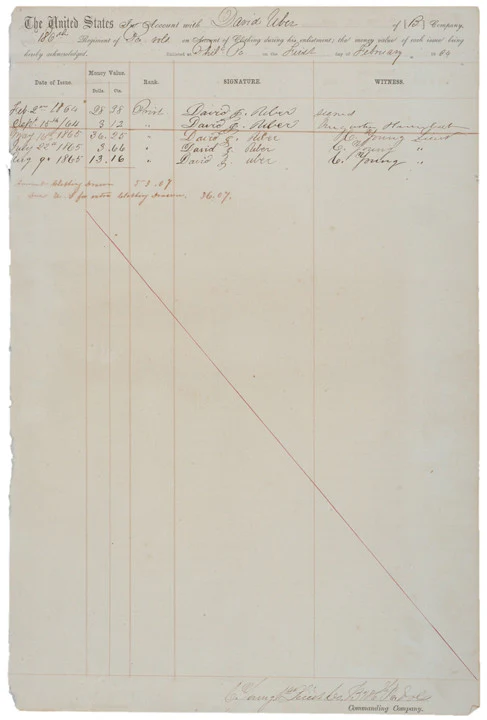 The United States In Account with David Uber of (B) Company,
186th Regiment of Pa. vols on Account of Clothing during his enlistment; the money value of each issue being
hereby acknowledged. Enlisted at Phil. Pa on the First day of February 64
Date of Issue. Money Value. Rank. SIGNATURE. WITNESS.
Dolls. Cts.
Feb 2nd 1864 28 38 Privt David Uber signed
Sept. 16th /64 3 12 " David Uber
May 16th 1865 36.20 " David Uber Young Lieut
July 22d 1865 3.66 " David Uber C. Young "
Aug 9. 1865 13.16 " David Uber C. Young "
Amount Clothing Drawn 53.07
Due U. S for extra Clothing Drawn 36.07.
C Young
Commanding Company.